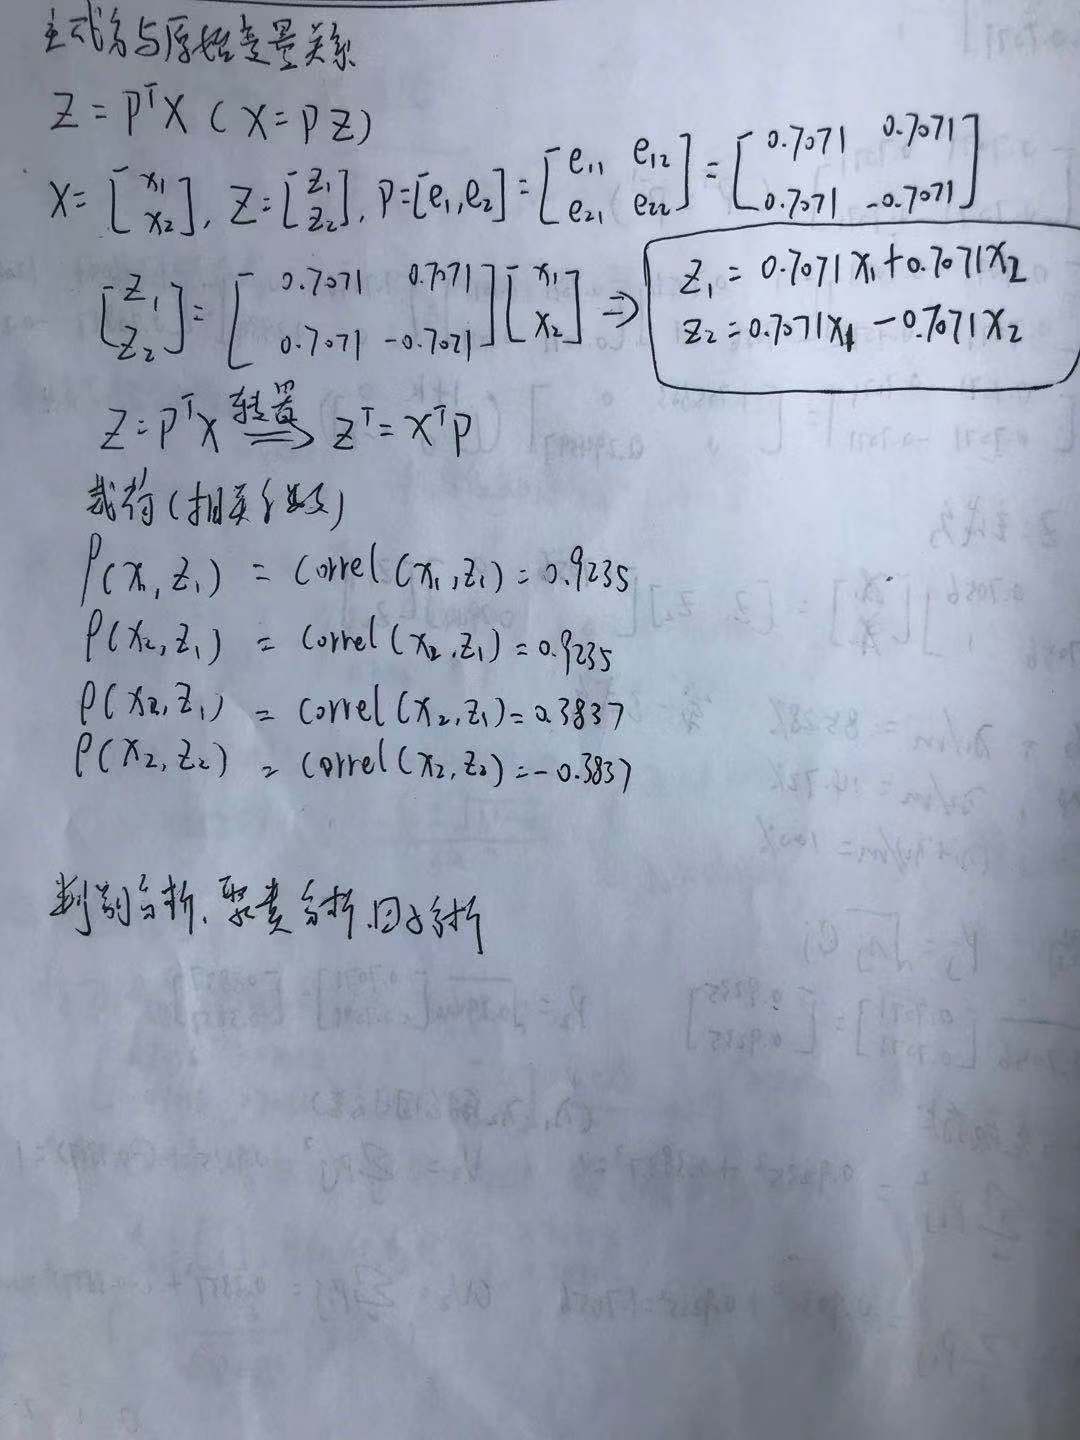 主成分与原始变量关系
Z = PᵀX ( X = PZ )
X = [x₁ x₂], Z = [z₁ z₂], P = [e₁, e₂] = [e₁₁ e₁₂ e₂₁ e₂₂] = [0.7071 0.7071 0.7071 -0.7071]
[z₁ z₂] = [0.7071 0.7071 0.7071 -0.7071] [x₁ x₂] ⇒ z₁ = 0.7071x₁ + 0.7071x₂
z₂ = 0.7071x₁ - 0.7071x₂
Z = PᵀX 转置⇒ Zᵀ = XᵀP
载荷(相关系数)
ρ(x₁, z₁) = correl(x₁, z₁) = 0.9235
ρ(x₂, z₁) = correl(x₂, z₁) = 0.9235
ρ(x₂, z₁) = correl(x₂, z₁) = 0.3837
ρ(x₂, z₂) = correl(x₂, z₂) = -0.3837
判别分析、聚类分析、因子分析